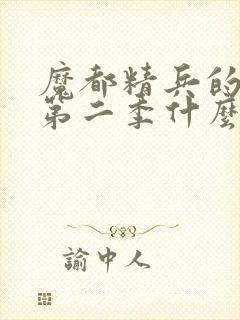 魔都精兵的
第二季什麼
諭中人